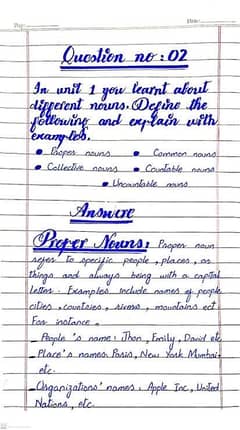 Question no: 02
In unit 1 you learnt about
different nouns. Define the
following and explain with
examples.
• Proper nouns • Common nouns
• Collective nouns • Countable nouns
• Uncountable nouns
Answere
Proper Nouns: Proper noun
refer to specific people, places, or
things and always being with a capital
letter. Examples include names of people
cities, countries, rivers, mountains ect
For instance.
_ People's name: Jhon, Emily, David etc
_ Place's names: Paris, New York Mumbai
etc.
_ Organizations' names: Apple Inc, United
Nations, etc.